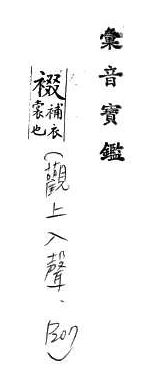 彙音寶鑑
裰補衣裳也(觀上入聲、